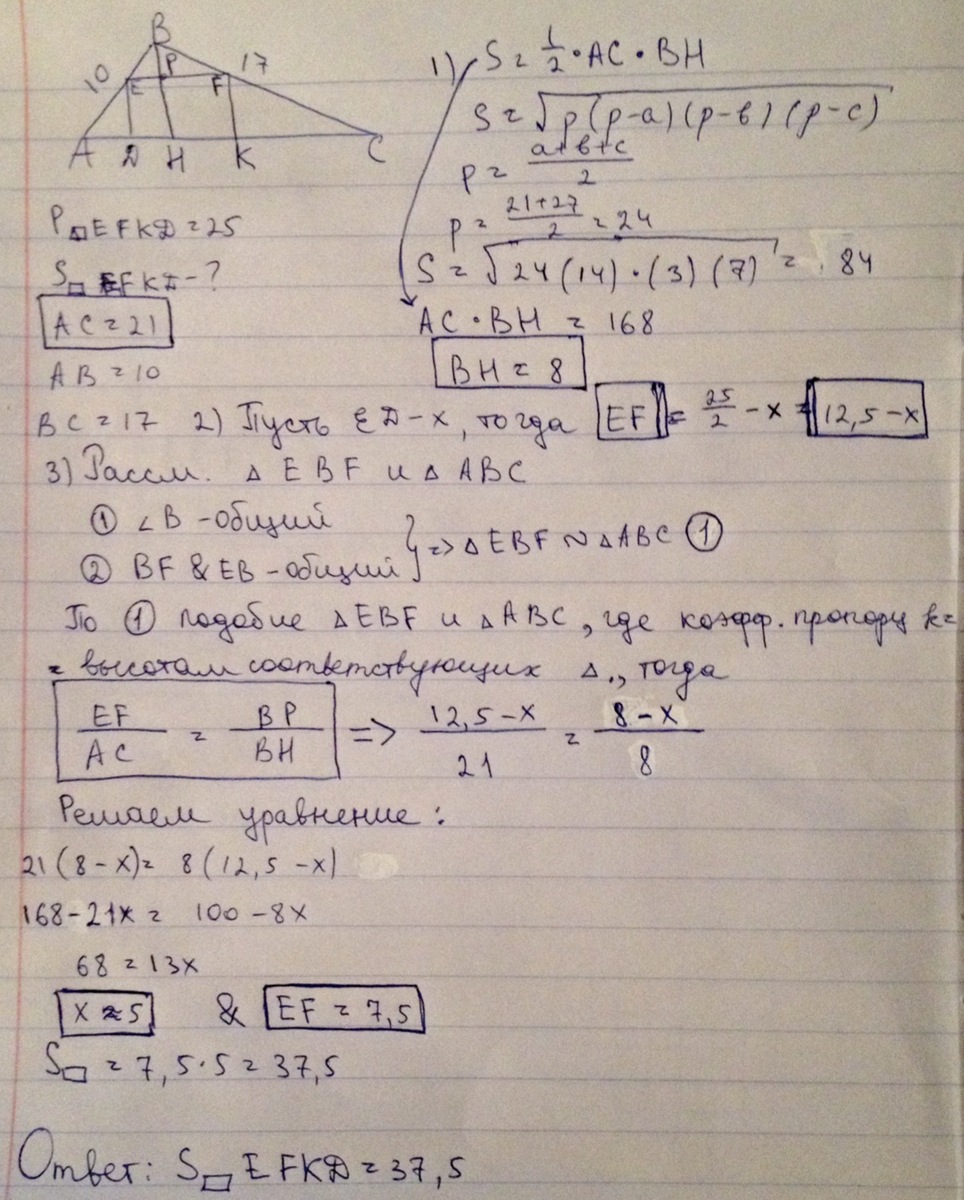 B
10 P 17
E F
A D H K C
1) S = 1/2 • AC • BH
S = √p(p-a)(p-b)(p-c)
p = a+b+c/2
p = 21+27/2 = 24
S = √24(14)•(3)(7) = 84
AC • BH = 168
BH = 8
P▭EFKD = 25
S▭ EFKD - ?
AC = 21
AB = 10
BC = 17
2) Пусть ED - x, тогда EF = 25/2 - x = 12,5 - x
3) Рассм. △ EBF и △ ABC
① ∠B - общий
② BF & EB - общий } => △EBF ~ △ABC ①
По ① подобие △EBF и △ABC, где коэфф. пропорц k =
= высотам соответствующих △., тогда
EF/AC = BP/BH => 12,5 - x/21 = 8 - x/8
Решаем уравнение:
21(8 - x) = 8(12,5 - x)
168 - 21x = 100 - 8x
68 = 13x
x ≈ 5 & EF = 7,5
S▭ = 7,5 • 5 = 37,5
Ответ: S▭ EFKD = 37,5